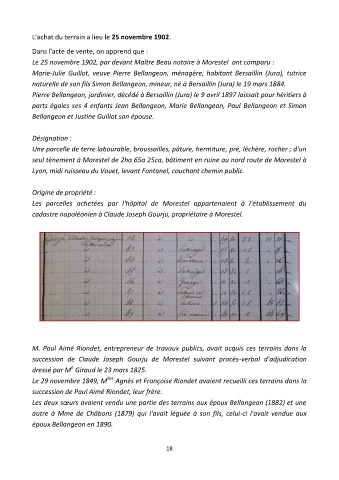 L'achat du terrain a lieu le 25 novembre 1902.
Dans l'acte de vente, on apprend que :
Le 25 novembre 1902, par devant Maître Beau notaire à Morestel ont comparu :
Marie-Julie Guillot, veuve Pierre Bellangeon, ménagère, habitant Bersaillin (Jura), tutrice
naturelle de son fils Simon Bellangeon, mineur, né à Bersaillin (Jura) le 19 mars 1884.
Pierre Bellangeon, jardinier, décédé à Bersaillin (Jura) le 9 avril 1897 laissait pour héritiers à
parts égales ses 4 enfants Jean Bellangeon, Marie Bellangeon, Paul Bellangeon et Simon
Bellangeon et Justine Guillot son épouse.
Désignation :
Une parcelle de terre labourable, broussailles, pâture, hermiture, pré, léchère, rocher ; d'un
seul tènement à Morestel de 2ha 65a 25ca, bâtiment en ruine au nord route de Morestel à
Lyon, midi ruisseau du Vouet, levant Fontanel, couchant chemin public.
Origine de propriété :
Les parcelles achetées par l'hôpital de Morestel appartenaient à l'établissement du
cadastre napoléonien à Claude Joseph Gourju, propriétaire à Morestel.
M. Paul Aimé Riondet, entrepreneur de travaux publics, avait acquis ces terrains dans la
succession de Claude Joseph Gourju de Morestel suivant procès-verbal d'adjudication
dressé par Me Giraud le 23 mars 1825.
Le 29 novembre 1849, Mlles Agnès et Françoise Riondet avaient recueilli ces terrains dans la
succession de Paul Aimé Riondet, leur frère.
Les deux sœurs avaient vendu une partie des terrains aux époux Bellangeon (1882) et une
autre à Mme de Châbons (1879) qui l'avait léguée à son fils, celui-ci l'avait vendue aux
époux Bellangeon en 1890.
18